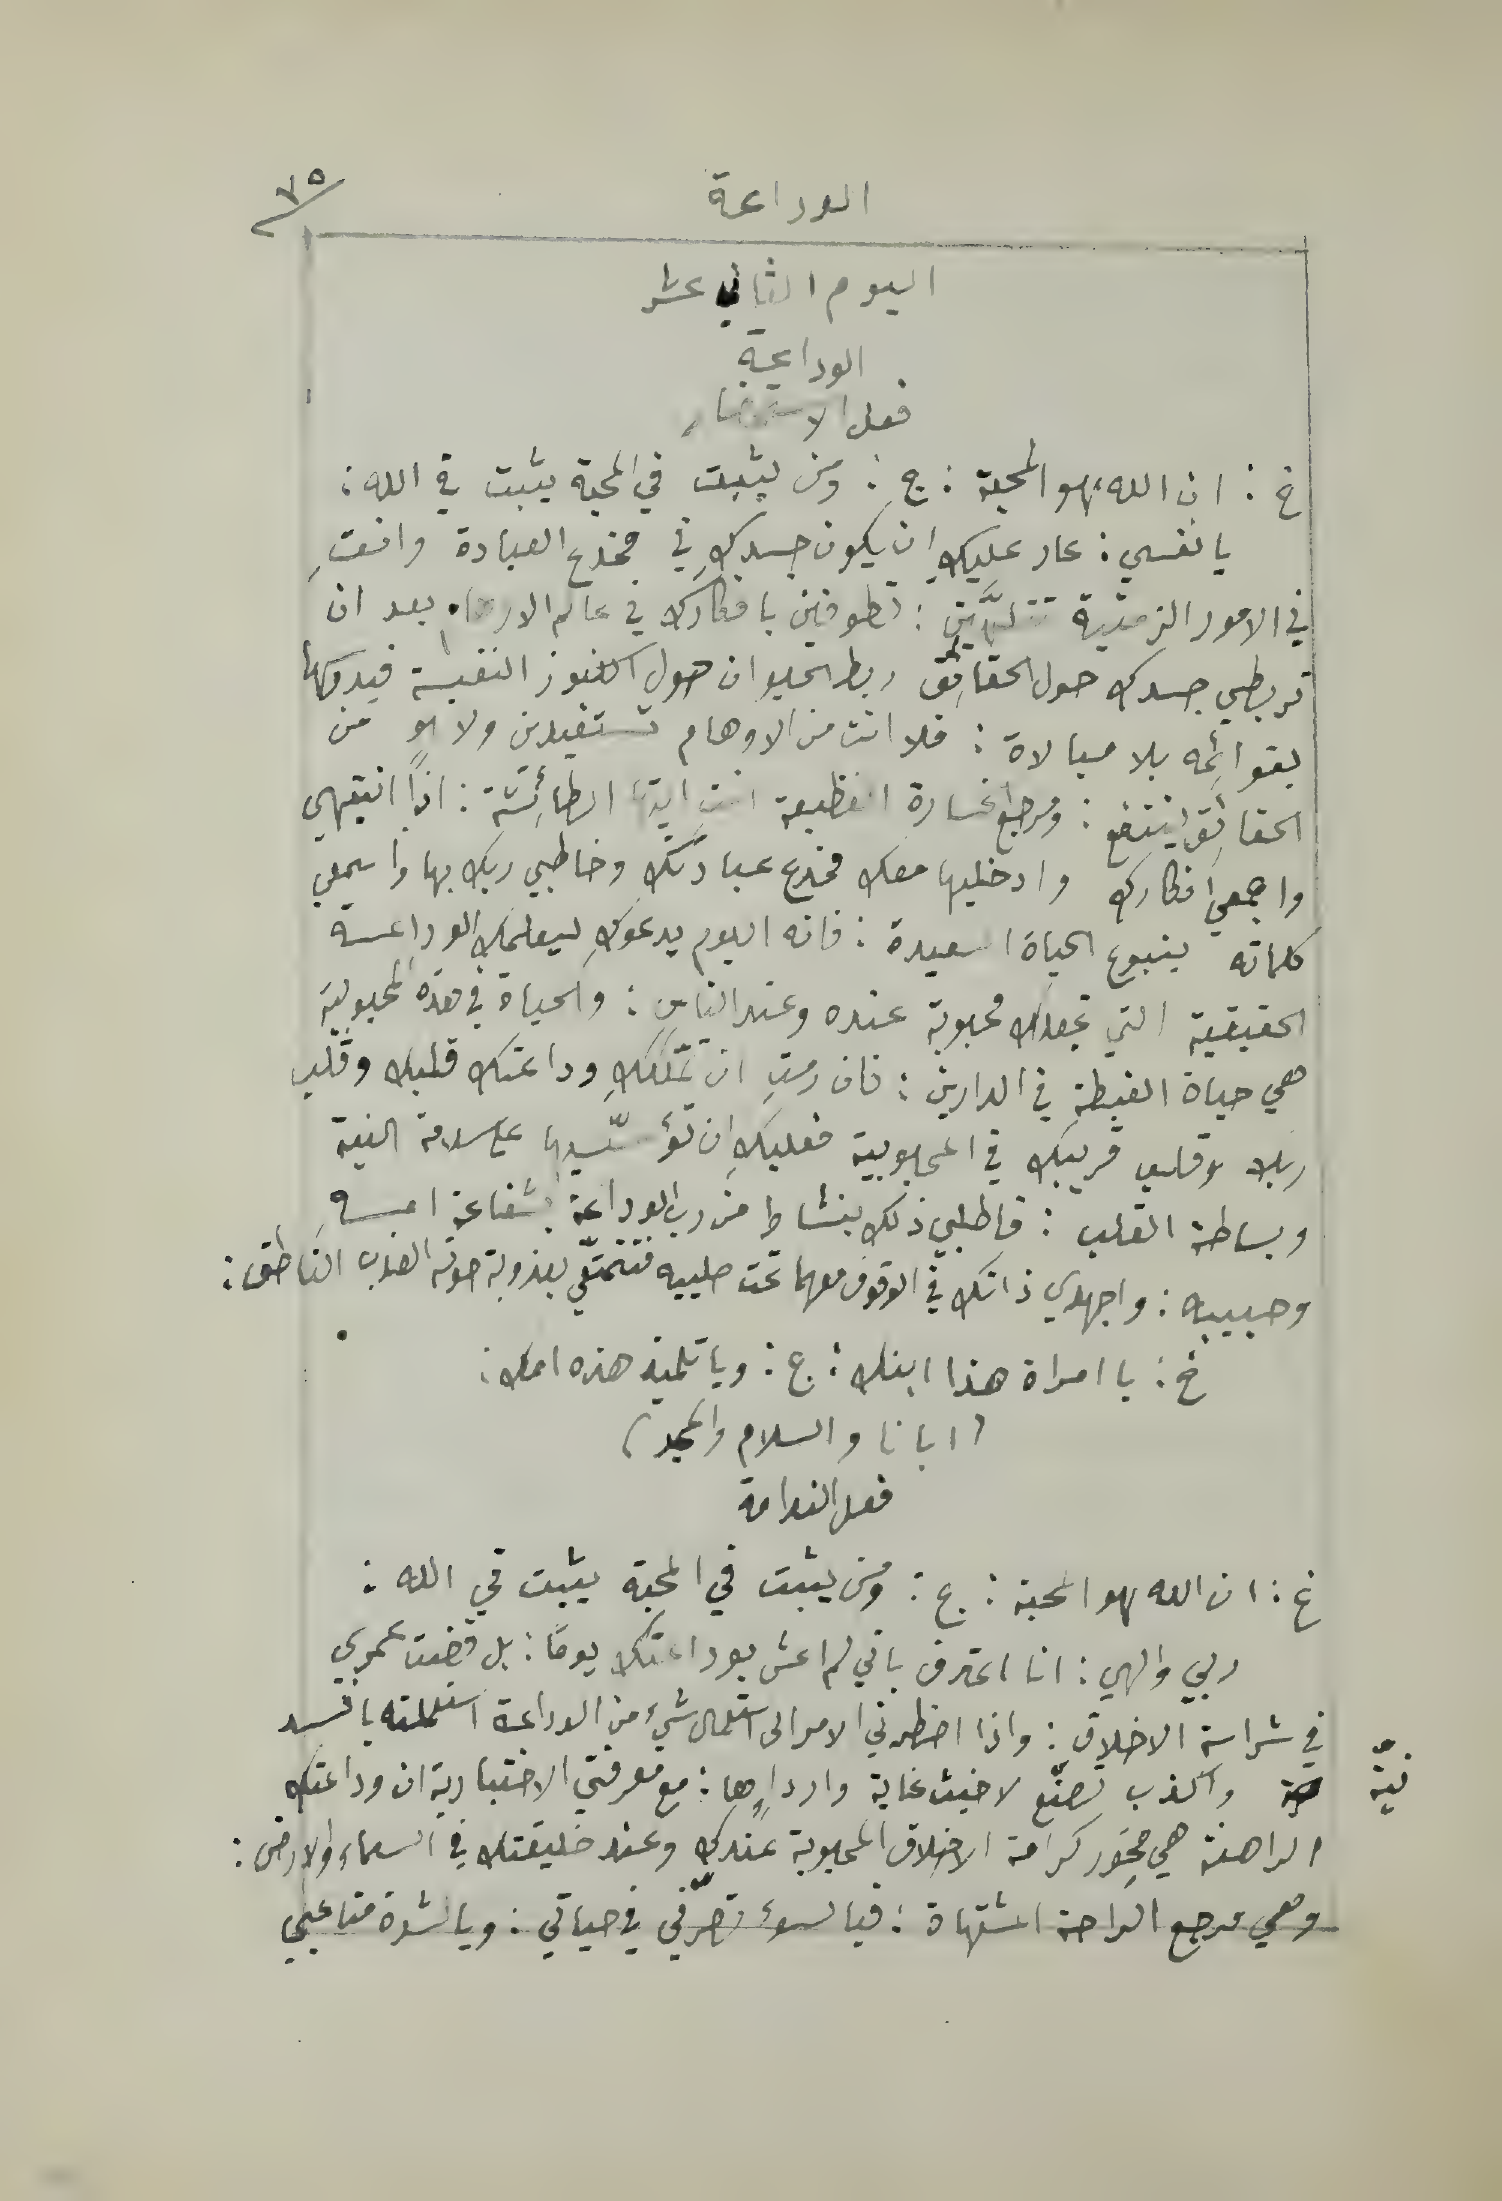 ٧٥
الوداعة
اليوم الثاني عشر
الوداعة
فعل الاستحضار
خ : ان الله هو المحبة : ج : ومن يثبت في المحبة يثبت في الله :
يا نفسي : عار عليكِ ان يكون جسدكِ في مخدع العبادة وانتِ
في الامور الزمنية : تطوفين بافكارك في عالم بعد ان
تربطي جسدك حول الحقائق ربط الحيوان حول الكنوز النفيسة فيدوكها
بقوائمه بلا مبالاة : فلا انت من الاوهام تستفيدين ولا هو من
الحقائق ينتفع : ومرجع الخسارة الفظيعة انتِ ايتها الطائشة : اذاً انتبهي
واجمعي افكارك وادخليها معك مخدع عبادتك وخاطبي ربك بها واسمعي
كلماته ينبوع الحياة السعيدة : فانه اليوم يدعوكِ ليعلمك الوداعـة
الحقيقية التي تجعلك محبوبة عنده وعند الناس : والحياة في هذه المحبوبية
هي حياة الغبطة في الدارين : فان رمتِ ان تملككِ وداعتك قلبك وقلب
ربك وقلب قريبك في المحبوبية فعليكِ ان تؤسّسيها على سلامة النية
وبساطة القلب : فاطلبي ذلك بنشاط من رب الوداعة بشفاعة امـهِ
وحبيبه : واجهدي ذاتك في الوقوف معهما تحت صليبه فتتمتّعي بعذوبة صوته العذب الناطق :
خ : يا امراة هذا ابنك : ج : ويا تلميذ هذه امك :
( ابانا والسلام والمجد )
فعل الندامة
خ : ان الله هو المحبة : ج : ومن يثبت في المحبة يثبت في الله :
ربي والهي : انا اعترف باني لم اعش بوداعتك يوماً : بل قضيت عمري
في شراسة الاخلاق : واذا اضطرني الامر الى استعمال شيء من الوداعة استعملته بافسد
نيّة واكذب تصنّع لاخبث غاية واردإها : مع معرفتي الاختبارية ان وداعتك
الراهنة هي محور كرامة الاخلاق المحبوبة عندك وعند خليقتك في السماء والارض :
وهي مرجع الراحة المشتهاة : فيا لسوء تصرّفي في حياتي : ويا لشدة متاعبي